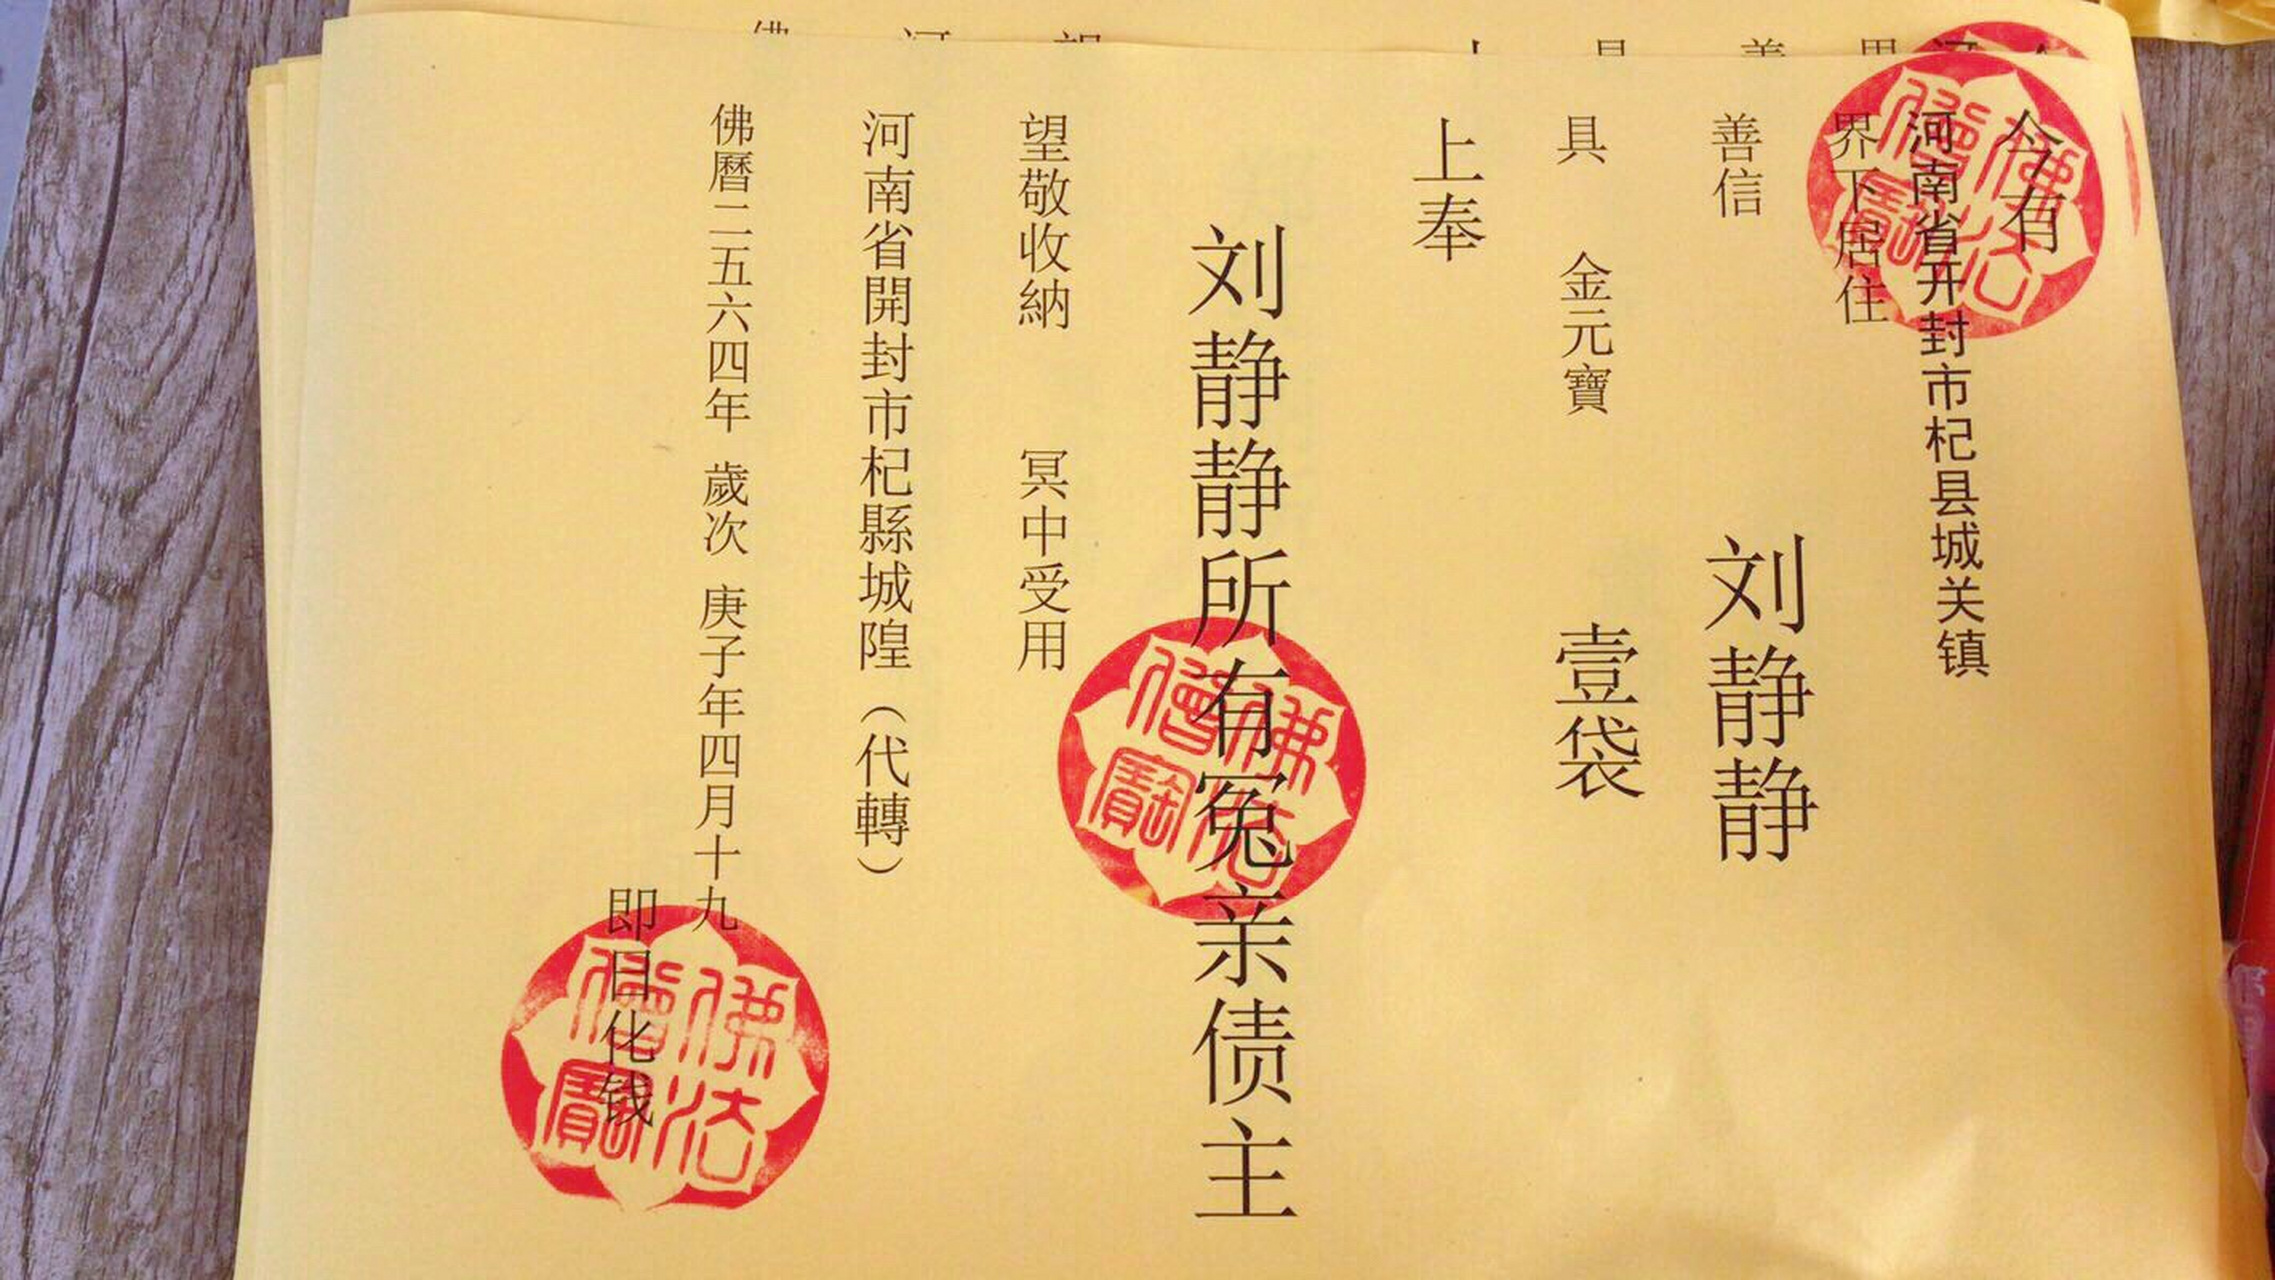 今有
河南省开封市杞县城关镇
界下居住
善信 刘静静
具 金元寶 壹袋
上奉
刘静静所有冤亲债主
望敬收納 冥中受用
河南省開封市杞縣城隍（代轉）
佛曆二五六四年 歲次 庚子年四月十九
即日化钱
佛法僧寶
佛法僧寶
佛法僧寶